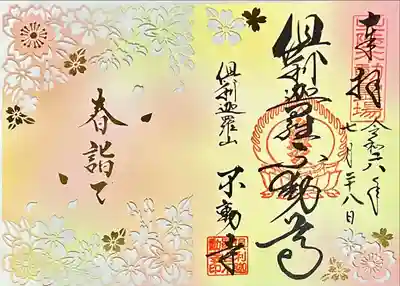 奉拝
令和六年
七月二十八日
倶利迦羅不動尊
倶利迦羅山
不動寺
春詣て